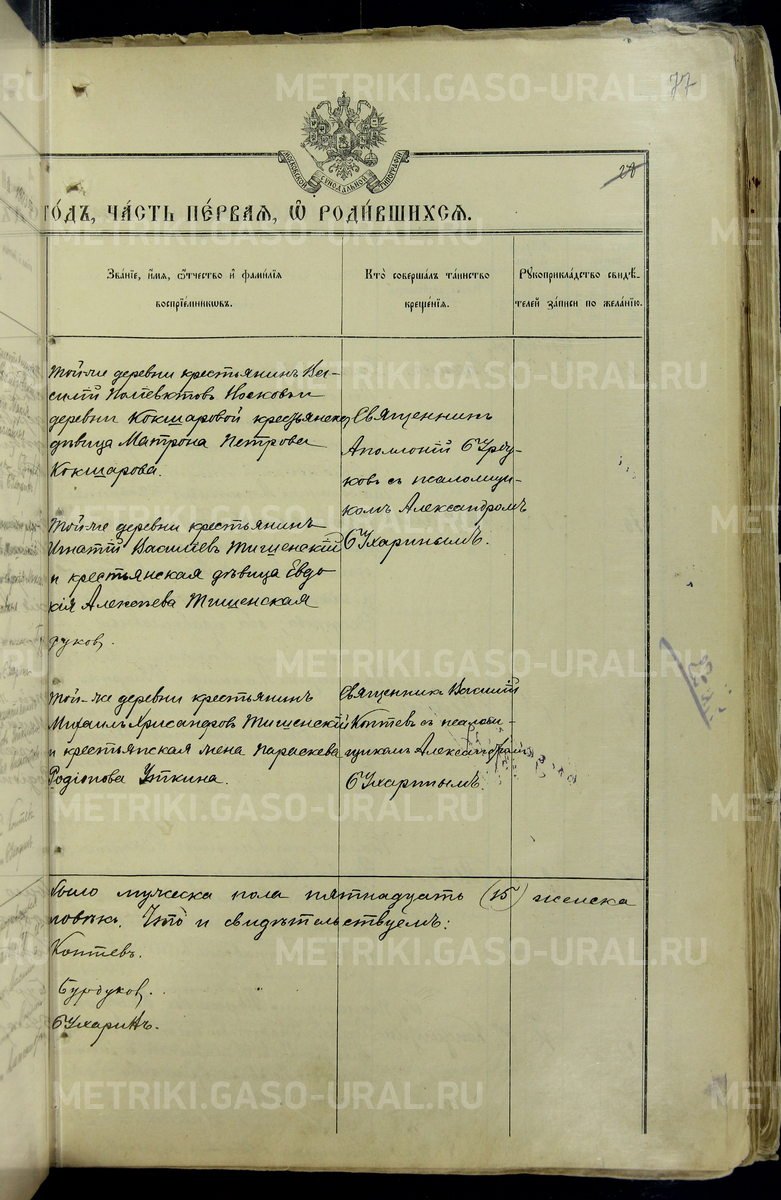 METRIKI.GASO-URAL.RU
77
МОСКОВСКОЙ СѴНОДАЛЬНОЙ ТИПОГРАФІИ
28
ГО́ДЪ, ЧА́СТЬ ПЕ́РВАЯ, Ѡ҆ РОДИ́ВШИХСЯ.
Зва́нїе, и҆́мя, ѻ҆́тчество и҆ фамѝлїя
воспрїе́мникѡвъ.
Кто̀ соверша́лъ та́инство
креще́нїя.
Рꙋкоприкла́дство свидѣ́-
телей за́писи по жела́нїю.
Той-же деревни крестьянинъ Ва-
силій Полiевктовъ Носковъ и
деревни Кокшаровой крестьянск.
дѣвица Матрона Петрова
Кокшарова.
Священникъ
Аполлоній Бурду-
ковъ съ псаломщи-
комъ Александромъ
Бухаринымъ.
Той-же деревни крестьянинъ
Игнатій Василіевъ Тишенскій
и крестьянская дѣвица Евдо-
кія Алексѣева Тишенская
дуков.
Той-же деревни крестьянинъ
Михаилъ Хрисанфовъ Тишенскій
и крестьянская жена Параскева
Родіонова Уткина.
Священникъ Василій
Коптевъ съ псалом-
щикомъ Александромъ
Бухаринымъ.
было мужеска пола пятнадцать (15) женска
ловѣкъ. Что и свидѣтельствуемъ:
Коптевъ.
Бурдуков.
Бухаринъ.